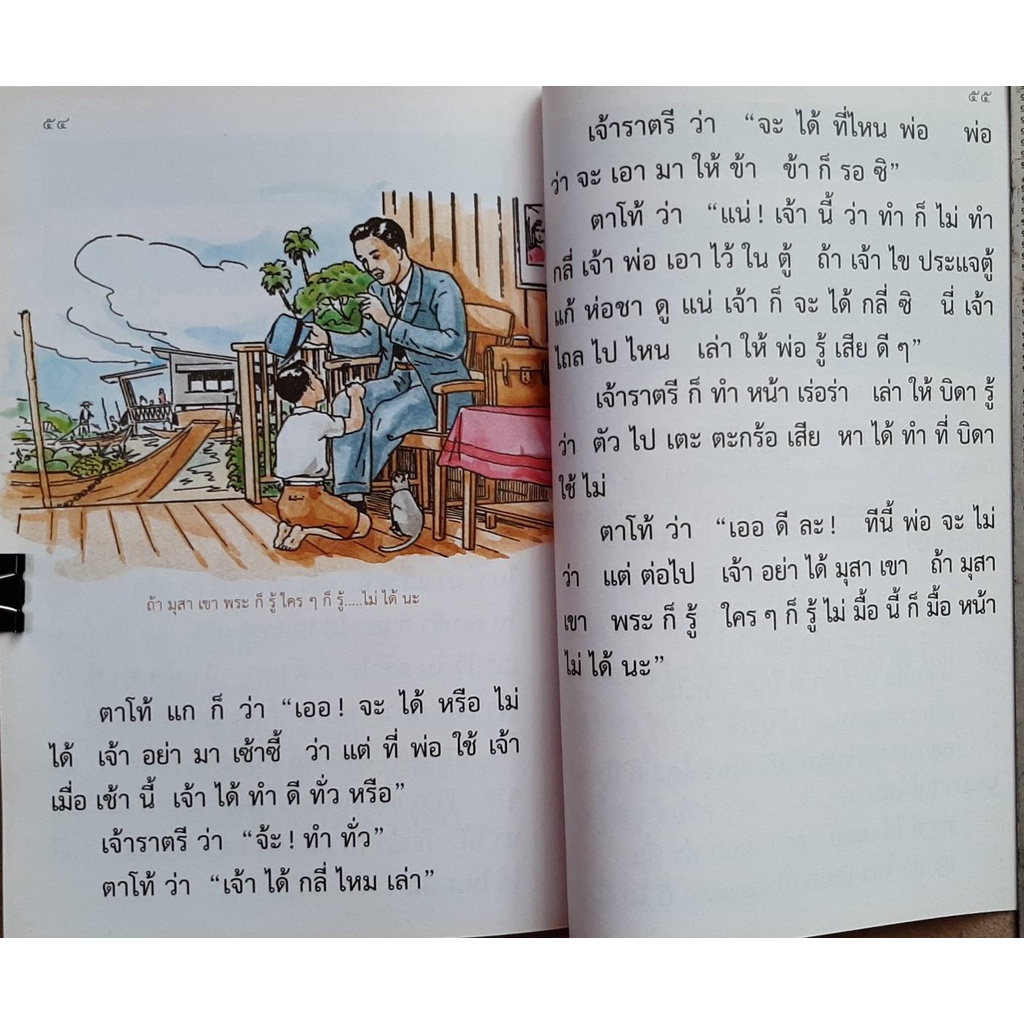 ๕๔
ถ้า มุสา เขา พระ ก็ รู้ ใคร ๆ ก็ รู้.....ไม่ ได้ นะ
ตาโท้ แก ก็ ว่า “เออ ! จะ ได้ หรือ ไม่
ได้ เจ้า อย่า มา เซ้าซี้ ว่า แต่ ที่ พ่อ ใช้ เจ้า
เมื่อ เช้า นี้ เจ้า ได้ ทำ ดี ทั่ว หรือ”
เจ้าราตรี ว่า “จ้ะ ! ทำ ทั่ว”
ตาโท้ ว่า “เจ้า ได้ กลี่ ไหม เล่า”
๕๕
เจ้าราตรี ว่า “จะ ได้ ที่ไหน พ่อ พ่อ
ว่า จะ เอา มา ให้ ข้า ข้า ก็ รอ ซิ”
ตาโท้ ว่า “แน่ ! เจ้า นี้ ว่า ทำ ก็ ไม่ ทำ
กลี่ เจ้า พ่อ เอา ไว้ ใน ตู้ ถ้า เจ้า ไข ประแจตู้
แก้ ห่อชา ดู แน่ เจ้า ก็ จะ ได้ กลี่ ซิ นี่ เจ้า
ไถล ไป ไหน เล่า ให้ พ่อ รู้ เสีย ดี ๆ”
เจ้าราตรี ก็ ทำ หน้า เร่อร่า เล่า ให้ บิดา รู้
ว่า ตัว ไป เตะ ตะกร้อ เสีย หา ได้ ทำ ที่ บิดา
ใช้ ไม่
ตาโท้ ว่า “เออ ดี ละ ! ทีนี้ พ่อ จะ ไม่
ว่า แต่ ต่อไป เจ้า อย่า ได้ มุสา เขา ถ้า มุสา
เขา พระ ก็ รู้ ใคร ๆ ก็ รู้ ไม่ มื้อ นี้ ก็ มื้อ หน้า
ไม่ ได้ นะ”